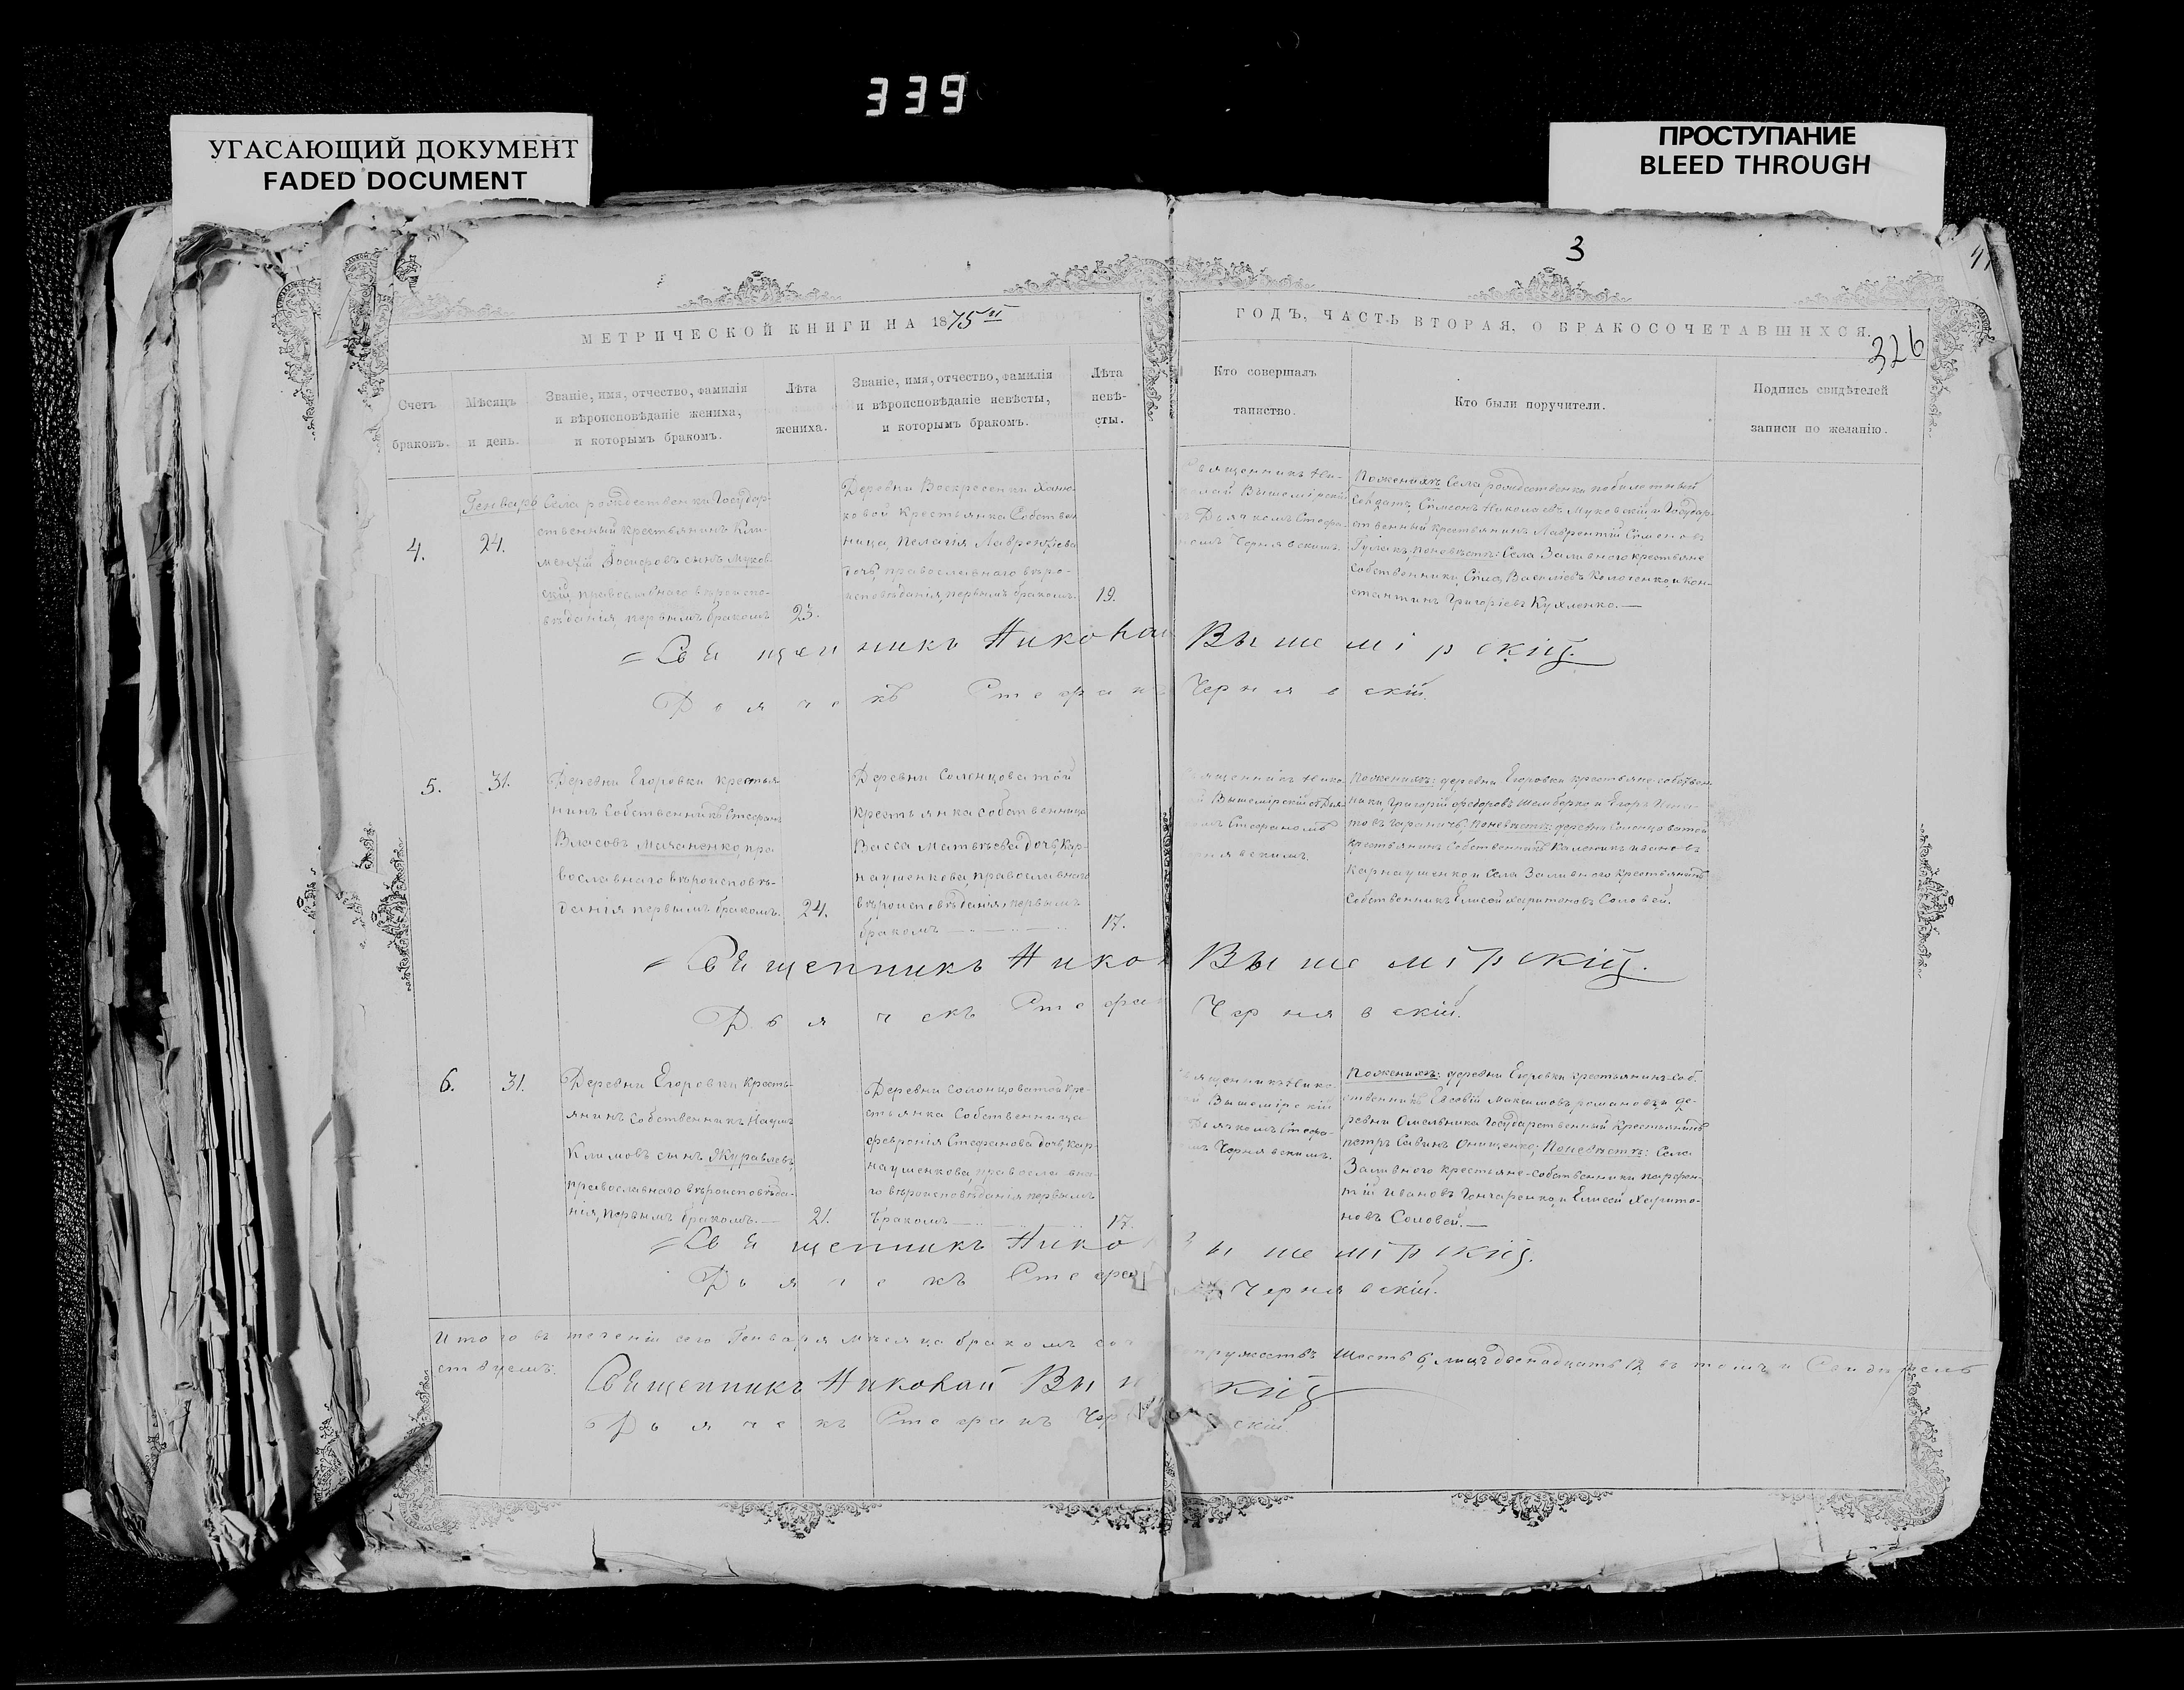 339
УГАСАЮЩИЙ ДОКУМЕНТ
FADED DOCUMENT
ПРОСТУПАНИЕ
BLEED THROUGH
3
41
326
МЕТРИЧЕСКОЙ КНИГИ НА 1875й
ГОДЪ, ЧАСТЬ ВТОРАЯ, О БРАКОСОЧЕТАВШИХСЯ.
Счетъ браковъ.
Мѣсяцъ и день.
Званіе, имя, отчество, фамилія
и вѣроисповѣданіе жениха,
и которымъ бракомъ.
Лѣта
жениха.
Званіе, имя, отчество, фамилія
и вѣроисповѣданіе невѣсты,
и которымъ бракомъ.
Лѣта
невѣ-
сты.
Кто совершалъ
таинство.
Кто были поручители.
Подпись свидѣтелей
записи по желанію.
4.
Генваръ
24.
Села рождественки Государ-
ственный крестьянинъ Кли-
ментій сынъ Муков-
скій, православнаго вѣроиспо-
вѣданія, первымъ бракомъ
23.
Деревни Воскресенки Ханю-
ковой Крестьянка Собствен
ница, Пелагія Лаврентіева
дочь, православнаго вѣро-
исповѣданія, первымъ бракомъ.
19.
священникъ Ни-
колай Вышемірскій
Дьячкомъ Стефа-
номъ Чернявскимъ.
По женихѣ: Села рождественки
Симеонъ Николаевъ Муковскій, и Государ-
ственный крестьянинъ Лаврентій Симеоновъ
по невѣстѣ: Села Заливного крестьяне
собственники, Василіевъ и Кон-
стантинъ Григоріевъ Кухленко.—
= Священникъ Николай Вышемірскій.
Дьячекъ Стефанъ Чернявскій.
5.
31.
Деревни Егоровки крестья
нинъ Собственникъ Стефанъ
Власовъ Мачаненко, пра
вославнаго вѣроисповѣ-
данія первымъ бракомъ.
24.
Деревни Солонцоватой
крестьянка собственница
Васса Матвѣева дочь, Кар-
наушенкова, православнаго
вѣроисповѣданія, первымъ
бракомъ
17.
Священникъ Нико-
Вышемірскій съ Дья
Стефаномъ
Чернявскимъ.
По женихѣ: деревни Егоровки крестьяне-собствен
ники, Григорій Федоровъ Шемберко, и Егоръ
по невѣстѣ: деревни Солонцоватой
крестьянинъ Собственникъ Каленикъ Ивановъ
Карнаушенко, и Села Заливного крестьянинъ
Собственникъ Елисей Харитоновъ Соловей.
= Священникъ Николай Вышемірскій.
Дьячекъ Стефанъ Чернявскій.
6.
31.
Деревни Егоровки Кресть-
янинъ собственникъ Наумъ
Климовъ сынъ Журавлевъ
православнаго вѣроисповѣда-
нія, первымъ бракомъ.—
21.
Деревни Солонцоватой кре-
стьянка Собственница
Февронія Стефанова дочь, Кар-
наушенкова, православна-
го вѣроисповѣданія первымъ
бракомъ
17.
Священникъ Нико-
Вышемірскій
Дьячкомъ Стефа-
Чернявскимъ.
По женихѣ: деревни Егоровки крестьянинъ-соб.
ственникъ Максимовъ Романовъ, и де-
ревни Омельника Государственный Крестьянинъ
петръ Савинъ Онищенко; По невѣстѣ: Села
Заливного крестьяне-собственники парфен-
тій Ивановъ Гончаренко, и Елисей Харито-
новъ Соловей.—
= Священникъ Николай Вышемірскій.
Дьячекъ Стефанъ Чернявскій.
Итого въ теченіи сего Генваря мѣсяца бракомъ супружествъ шесть 6, лицъ двенадцать 12, въ томъ и Свидѣтель
ствуемъ:
Священникъ Николай Вышемірскій
Дьячекъ Стефанъ Чернявскій